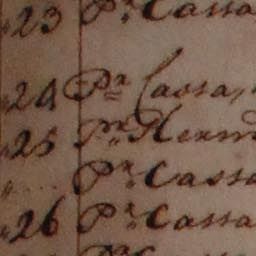 23 Pr. Cassa
24 Pr Cassa,
25 Pr
" .... Pr. Cassa
26 Pr. Cassa